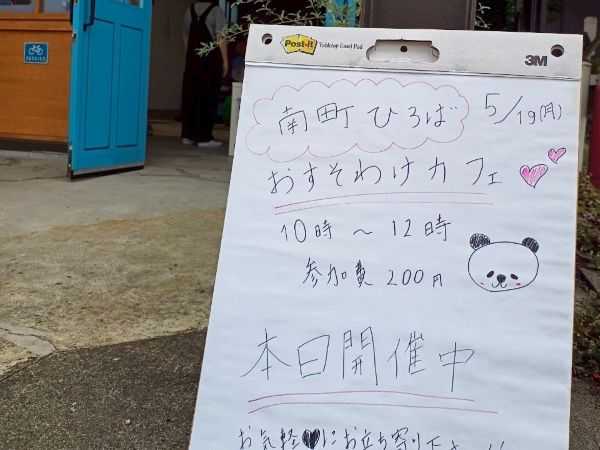 Post-it Tabletop Easel Pad
3M
南町ひろば 5/19(月)
おすそわけカフェ
10時～12時
参加費 200円
本日開催中
お気軽にお立ち寄り下さい